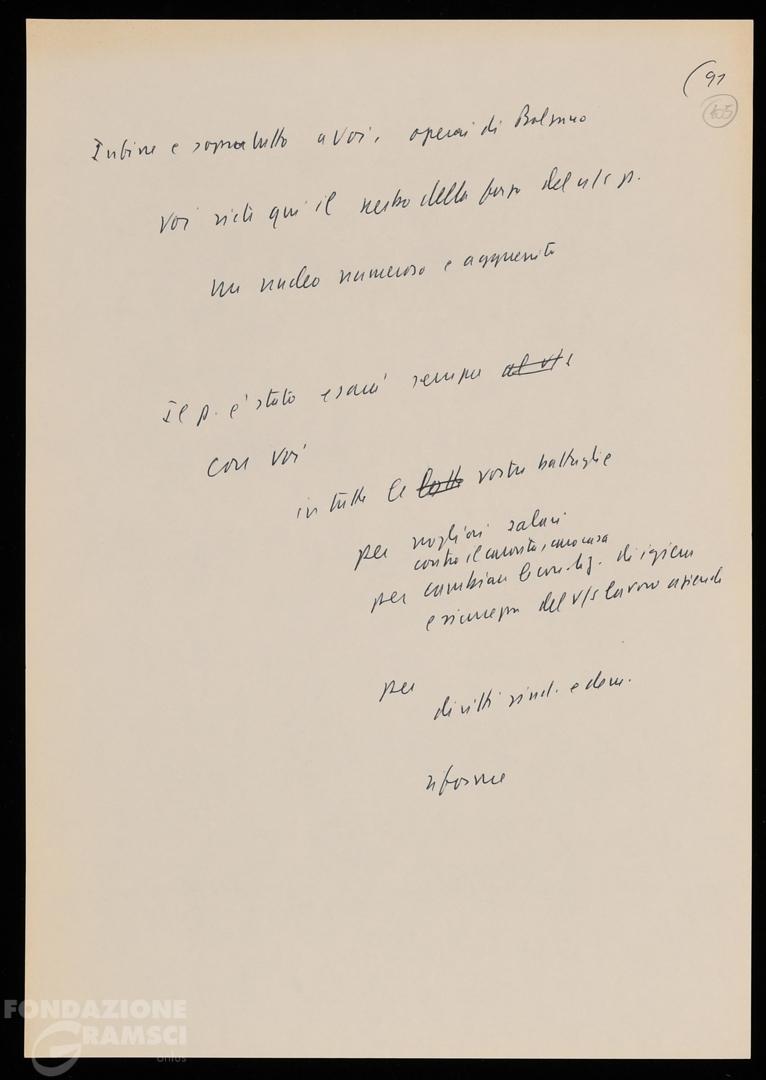 (91
105
Infine e soprattutto a voi, operai di Bolzano
Voi siete qui il nerbo della forza del n/s p.
un nucleo numeroso e agguerrito
Il p. è stato e sarà sempre al v/s
con voi
in tutte le lotte vostre battaglie
per migliori salari
contro il carovita, caro casa
per cambiare le condiz. di igiene
e sicurezza del v/s lavoro aziende
per
diritti sind. e dem.
riforme
FONDAZIONE
GRAMSCI
onlus